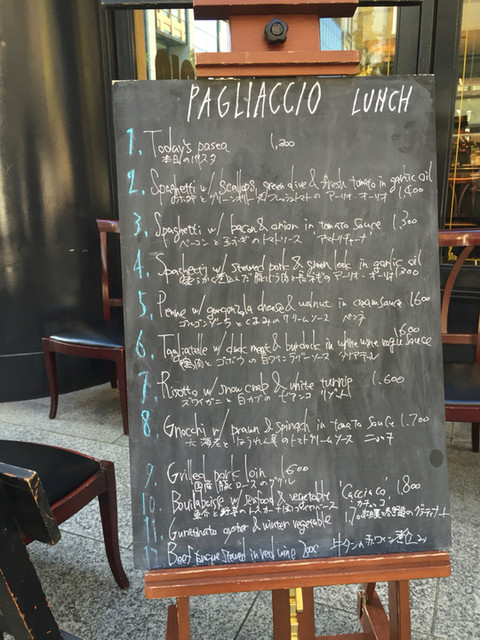 PAGLIACCIO LUNCH
1. Today's pasta 1,200
本日のパスタ
2. Spaghetti w/ Scallops, green olive & fresh tomato in garlic oil
1,400
3. Spaghetti w/ bacon & onion in tomato sauce 1,300
ベーコンと玉ねぎのトマトソース アマトリチャーナ
4. Spaghetti w/ stewed pork & green leek in garlic oil
1,300
5. Penne w/ gorgonzola cheese & walnut in cream sauce 1,600
ゴルゴンゾーラとくるみのクリームソース ペンネ
1,600
6. Tagliatelle w/ duck meat & burdock in white wine ragu sauce
7. Risotto w/ snow crab & white turnip 1,600
ズワイガニと白カブの リゾット
8. Gnocchi w/ prawn & spinach in tomato sauce 1,700
大海老とほうれん草のトマトクリームソース ニョッキ
9. Grilled pork loin 1,600
10. w/ seafood & vegetable "Cacciucco" 1,800
カチュッコ
11. oyster & winter vegetable 1,700
Beef tongue stewed in red wine
牛タンの赤ワイン煮込み